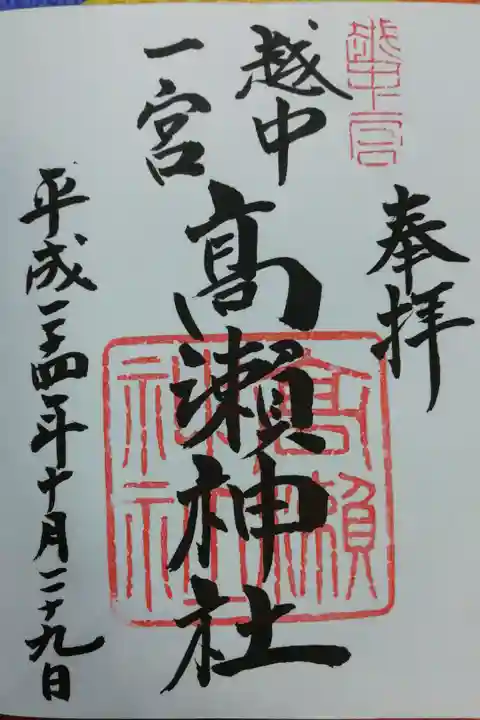 越中一宮
奉拝
越中
一宮
髙瀬神社
高瀬神社
平成二十四年十月二十九日